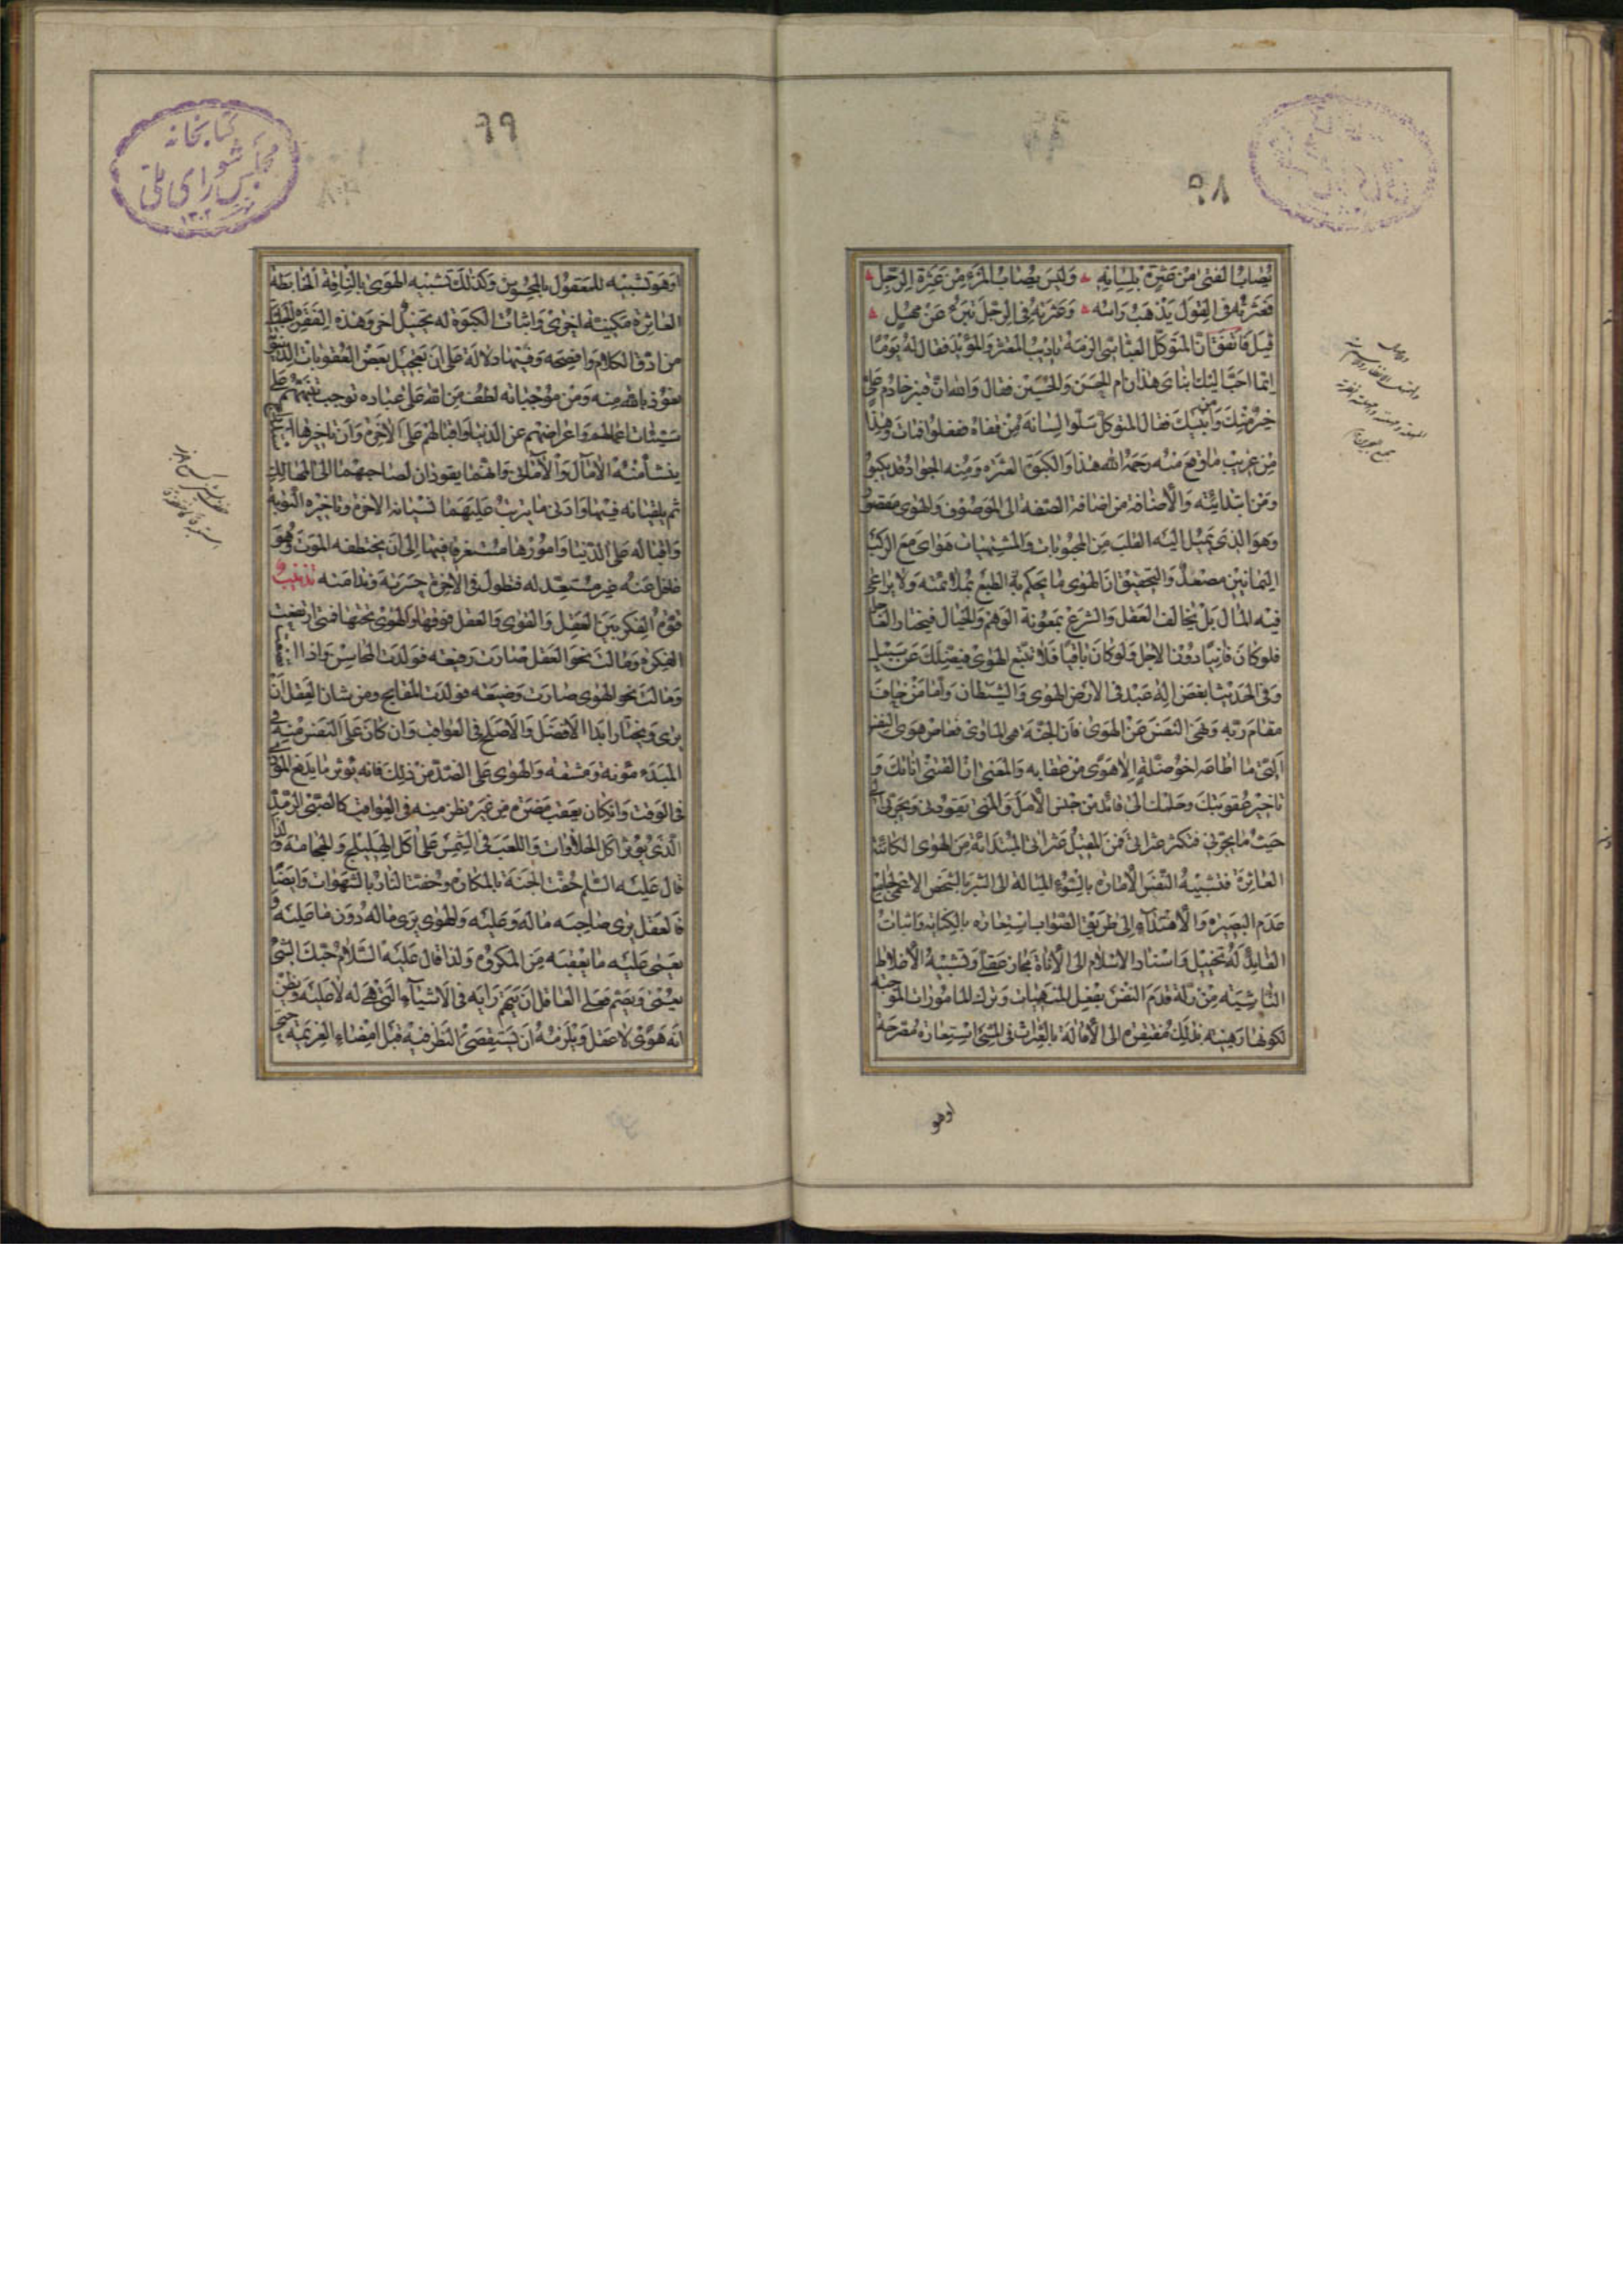 ٩٨
يُصابُ الفتىٰ مِن عَثرَةٍ بلِسانِهِ وَلَيسَ يُصابُ المَرءُ مِن عَثرَةِ الرِّجلِ
فَعَثرَتُهُ فِى القَولِ يَذهَبُ رَاسُه وَعَثرَتُهُ فِى الرِّجلِ تَبرَءُ عَن مَهلٍ
قيلَ فَاتّفَقَ اَنّ المتَوَكّل العبّاسى الزمَهُ تاديبَ المعتز والمؤيّد فقالَ لَهُ يَومًا
ايّما احَبّ اليَكَ ابناىَ هذان ام الحسَنَ وَالحُسَين فقالَ وَاللهِ انّ قنبر خادم علىّ
خيرٌ مِنكَ وَمن ابنَيكَ فقالَ المتَوكّل سَلّوا لِسانَهُ مِن قفاهُ ففعَلوا فمات وَهذا
مِن غريبِ ما وقعَ مِنه رَحمَهُ الله هذا وَالكبوَة العثرَة ومِنه الجواد قد يكبو
وَمِن ابتدائيّة وَالاضافة من اضافة الصّفة الى الموصُوف وَالهوى مَقصور
وَهوَ الذى تميلُ اليَه القلبَ مِن المحبُوبات وَالمشتهيات هَواىَ مَعَ الركبِ
اليمانينَ مصعدٌ وَالتحقيقُ انّ الهوى ما يَحكم بهِ الطبع بملائمته وَلا يراعى
فيه المآل بَل يخالف العَقل وَالشرع بمعونة الوَهم وَالخيال فيختار العَاجل
فلو كانَ فانيًا دونَ الاجل وَلو كانَ باقيًا فلا تتّبع الهوى فيضلّكَ عَن سَبيل
وَفى الحَديث ابغض الٰهٍ عُبدَ فى الارض الهوى وَالشيطان وَامّا مَن خافَ
مقامَ رَبّه وَنهَى النفسَ عَن الهوىٰ فانّ الجنّة هى الماوىٰ فعاص هوى النفس
الّتى ما اطاعه اخو ضلّة الّا هَوى مِن عقابه وَالمعنى انّ الفتنى اناتكَ وَ
تاخير عقوبتكَ وحلمك الى قائد من جنس الامَل وَالمنى يقودنى ويجرّنى الى
حَيثُ ما يجرّنى فتكثر عثراتى فمَن المقيلُ عثراتى المبتدائة مِن الهوى الكائنة
العاثِرة فتشبيهُ النفسِ الامّارة بالسُوءِ الميّالة الى الشرّ بالشخص الاعمى بجامع
عَدَم البَصيرة وَالاهتداءِ الى طَريقِ الصّواب استِعارة بالكناية واثبات
القايدُ لَهُ تخييل وَاسناد الاسلام الى الاناة مَجاز عَقلى وتشبيهُ الاغلاط
النّاشيَته مِن زلة قدَم النفسَ بفِعل المنهيّات وَترك المامُورات الموجبة
لكونها رَهينة بذلِكَ مُفتقِره الى الاقالة بالعثرات فى المشى استِعارة مُصرّحَة
اوهو
٩٩
اوَهوَ تشبيه للمَعقول بالمحسُوسِ وَكذلكَ تشبيه الهوَى بالنّاقة الخابطة
العاثِرة مَكنيّة اخرىٰ وَاثبات الكبوَة له تخييلٌ اخر وَهذه الفقَرة
من ادقّ الكلام وَافصَحه وَفيها دلالة عَلى انّ تعجيلَ بَعضِ العُقوبات
نعوذ بالله منه وَمن مُوجباته لطفٌ مِن الله عَلى عباده توجب تنبّههم على
سَيّئات اعمالهم وَاعراضهم عن الدنيا وَاقبالهم عَلى الاخرة وَانّ تاخيرها
ينشأ منهُ الامآل وَالامانى وانّهما يقودان لصاحبهما الى المهالك
ثمّ يلقيانه فيها وَادنى ما يترتّبُ عليَهما نسيانه الاخرة وتاخيره التوبة
وَاقباله عَلى الدّنيا وَامُورها مستغرقا فيها الى ان يختطفه الموَت وَهُوَ
غافل عَنه غير مستعِدّ له فتطول فى الاخرة حَسرته وَندامته تذنيب
قوّةُ الفكر بَينَ العَقل وَالهَوى وَالعَقل فوقها وَالهوىٰ تحتها فمتىٰ ارتفعت
الفكرة وَمالت نحوَ العَقل صَارت رفيعه فولدَت المحاسِن وَاذا
وَمالَت نحو الهوى صارت وَضيعَه فولدَت القبايح ومن شان العَقل انّ
يرى وَيختار ابدًا الافضَل وَالاصلح فى العواقب وَان كانَ عَلَى النفسِ منه فى
المبدَء مؤنة وَمشقة والهوى عَلى الضدّ من ذلِكَ فانه يؤثر ما يدفع الموذى
فى الوَقت وَان كان يعقب مضرّة مِن غير نظر منه فى العواقب كالصّبىّ الرّمد
الّذى يؤثر اكل الحلاوات وَاللعب فى الشمس عَلى اكل الهليلج وَالحجامة وَلذا
قال عَليَه السّلم حُفّت الجنّة بالمكاره وحُفّت النار بالشهوات وَايضًا
فالعَقل يرى صاحبه ماله وَعليَه وَالهوى يرى ماله دون ما عليَه و
يعمى عليَه ما يعقبه مِن المكروه وَلذا قال عَليَه السّلام حبّك الشئ
يعمى وَيصمّ فعلى العاقل ان يتّهم رَايه فى الاشياءِ التى هى له لا عليَه ويظن
انّه هوًى لا عقل وَيلزمهُ ان يستقصىَ النظر فيه قبل امضاءِ العزيمة حتى
كتابخانه
مجلس شوراى ملى
١٣٠٢